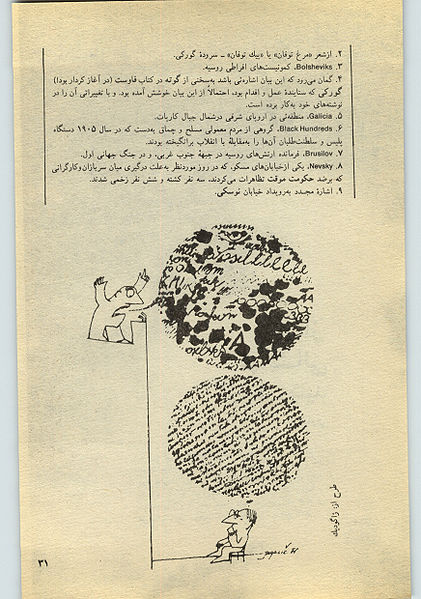 ۲. ازشعر «مرغ توفان» یا «پیك توفان» ــ سرودهٔ گورکی.
۳. Bolsheviks، کمونیست‌های افراطی روسیه.
۴. گمان می‌رود که این بیان اشاره‌ئی باشد به‌سخنی از گوته در کتاب فاوست (در آغاز کردار بود!)
گورکی که ستایندهٔ عمل و اقدام بود، احتمالاً از این بیان خوشش آمده بود. و با تغییراتی آن را در
نوشته‌های خود به‌کار برده است.
۵. Galicia، منطقه‌ئی در اروپای شرقی درشمال جبال کارپات.
۶. Black Hundreds، گروهی از مردم معمولی مسلح و چماق به‌دست که در سال ۱۹۰۵ دستگاه
پلیس و سلطنت‌طلبان آن‌ها را به‌مقابله با انقلاب برانگیخته بودند.
۷. Brusilov، فرمانده ارتش‌های روسیه در جبههٔ جنوب غربی، و در جنگ جهانی اول.
۸. Nevsky، یکی ازخیابان‌های مسکو، که در روز موردنظر به‌علت درگیری میان سربازان‌وکارگرانی
که برضد حکومت موقت تظاهرات می‌کردند، سه نفر کشته و شش نفر زخمی شدند.
۹. اشارهٔ مجدد به‌رویداد خیابان نوسکی.
طرح از: زاگودنیك
۳۱